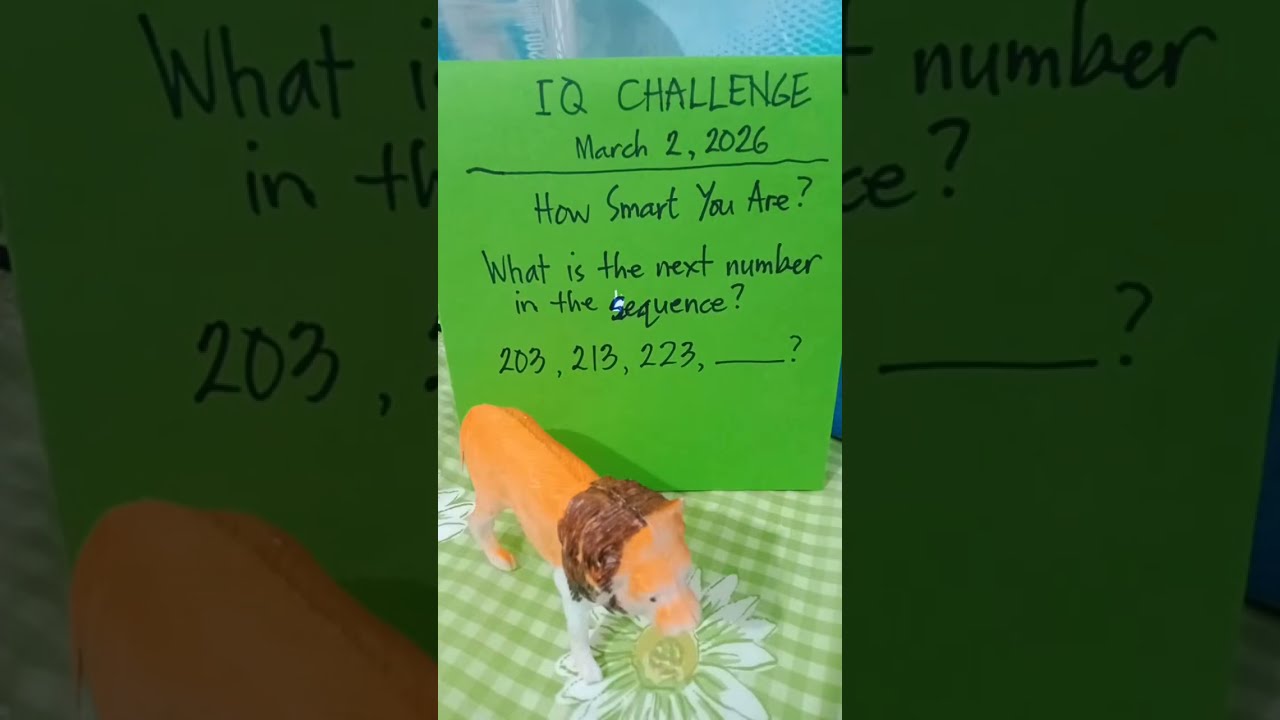 IQ CHALLENGE
March 2, 2026
How Smart You Are?
What is the next number
in the sequence?
203, 213, 223, ____?